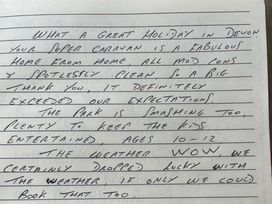 WHAT A GREAT HOLIDAY IN DEVON
YOUR SUPER CARAVAN IS A FABULOUS
HOME FROM HOME, ALL MOD CONS
& SPOTLESSLY CLEAN. SO A BIG
THANK YOU, IT DEFINITELY
EXCEEDED OUR EXPECTATIONS.
THE PARK IS SMASHING TOO,
PLENTY TO KEEP THE KIDS
ENTERTAINED, AGES 10-12.
THE WEATHER WOW WE
CERTAINLY DROPPED LUCKY WITH
THE WEATHER, IF ONLY WE COULD
BOOK THAT TOO.